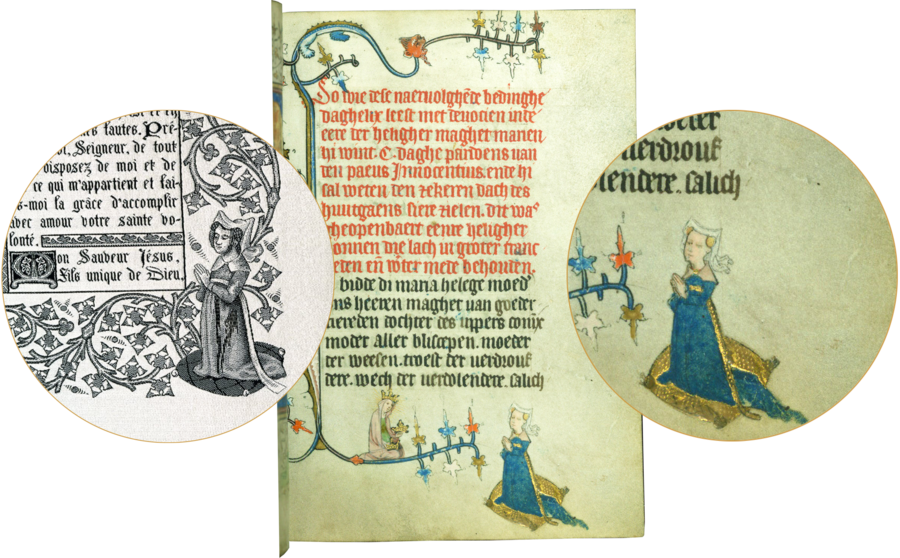 fautes. Pré-
Seigneur, de tout
disposez de moi et de
ce qui m'appartient et fai-
s-moi la grâce d'accomplir
avec amour votre sainte vo-
lonté.
Mon Sauveur Jésus,
Fils unique de Dieu
So wie dese naervolghēde bedinghe
daghelix leest met devocien inde
eere der heligher maghet marien
hi wint .C. daghe pardens van
den paeus Innocentius. ende hi
sal weten den zekeren dach des
huutgaens siere zielen. dit was
gheopenbaert eenre heligher
nonnen die lach in groter tranc
eten eñ wter mede behouden.
bidde di maria helege moed'
ons heeren maghet van goeder
tierēden dochter des uppers conix
moder aller bliscepen. moeder
der weesen. troest der verdrouf
dere. wech der verdolendere. salich
verdrouf
lendere. salich